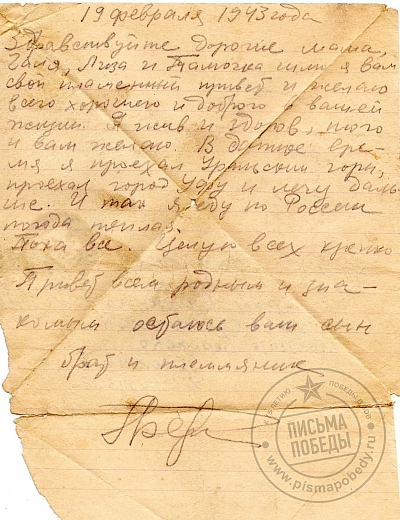 19 февраля 1943 года
Здравствуйте дорогие мама,
Галя, Лиза и Тамочка шлю я вам
свой пламенный привет и желаю
всего хорошего и доброго в вашей
жизни. Я жив и здоров, того
и вам желаю. В данное вре-
мя я проехал Уральские горы,
проехал город Уфу и лечу даль-
ше. И так я еду по России
погода теплая.
Пока все. Целую всех крепко
Привет всем родным и зна-
комым остаюсь ваш сын
брат и племянник
ПИСЬМА
ПОБЕДЫ
www.pismapobedy.ru